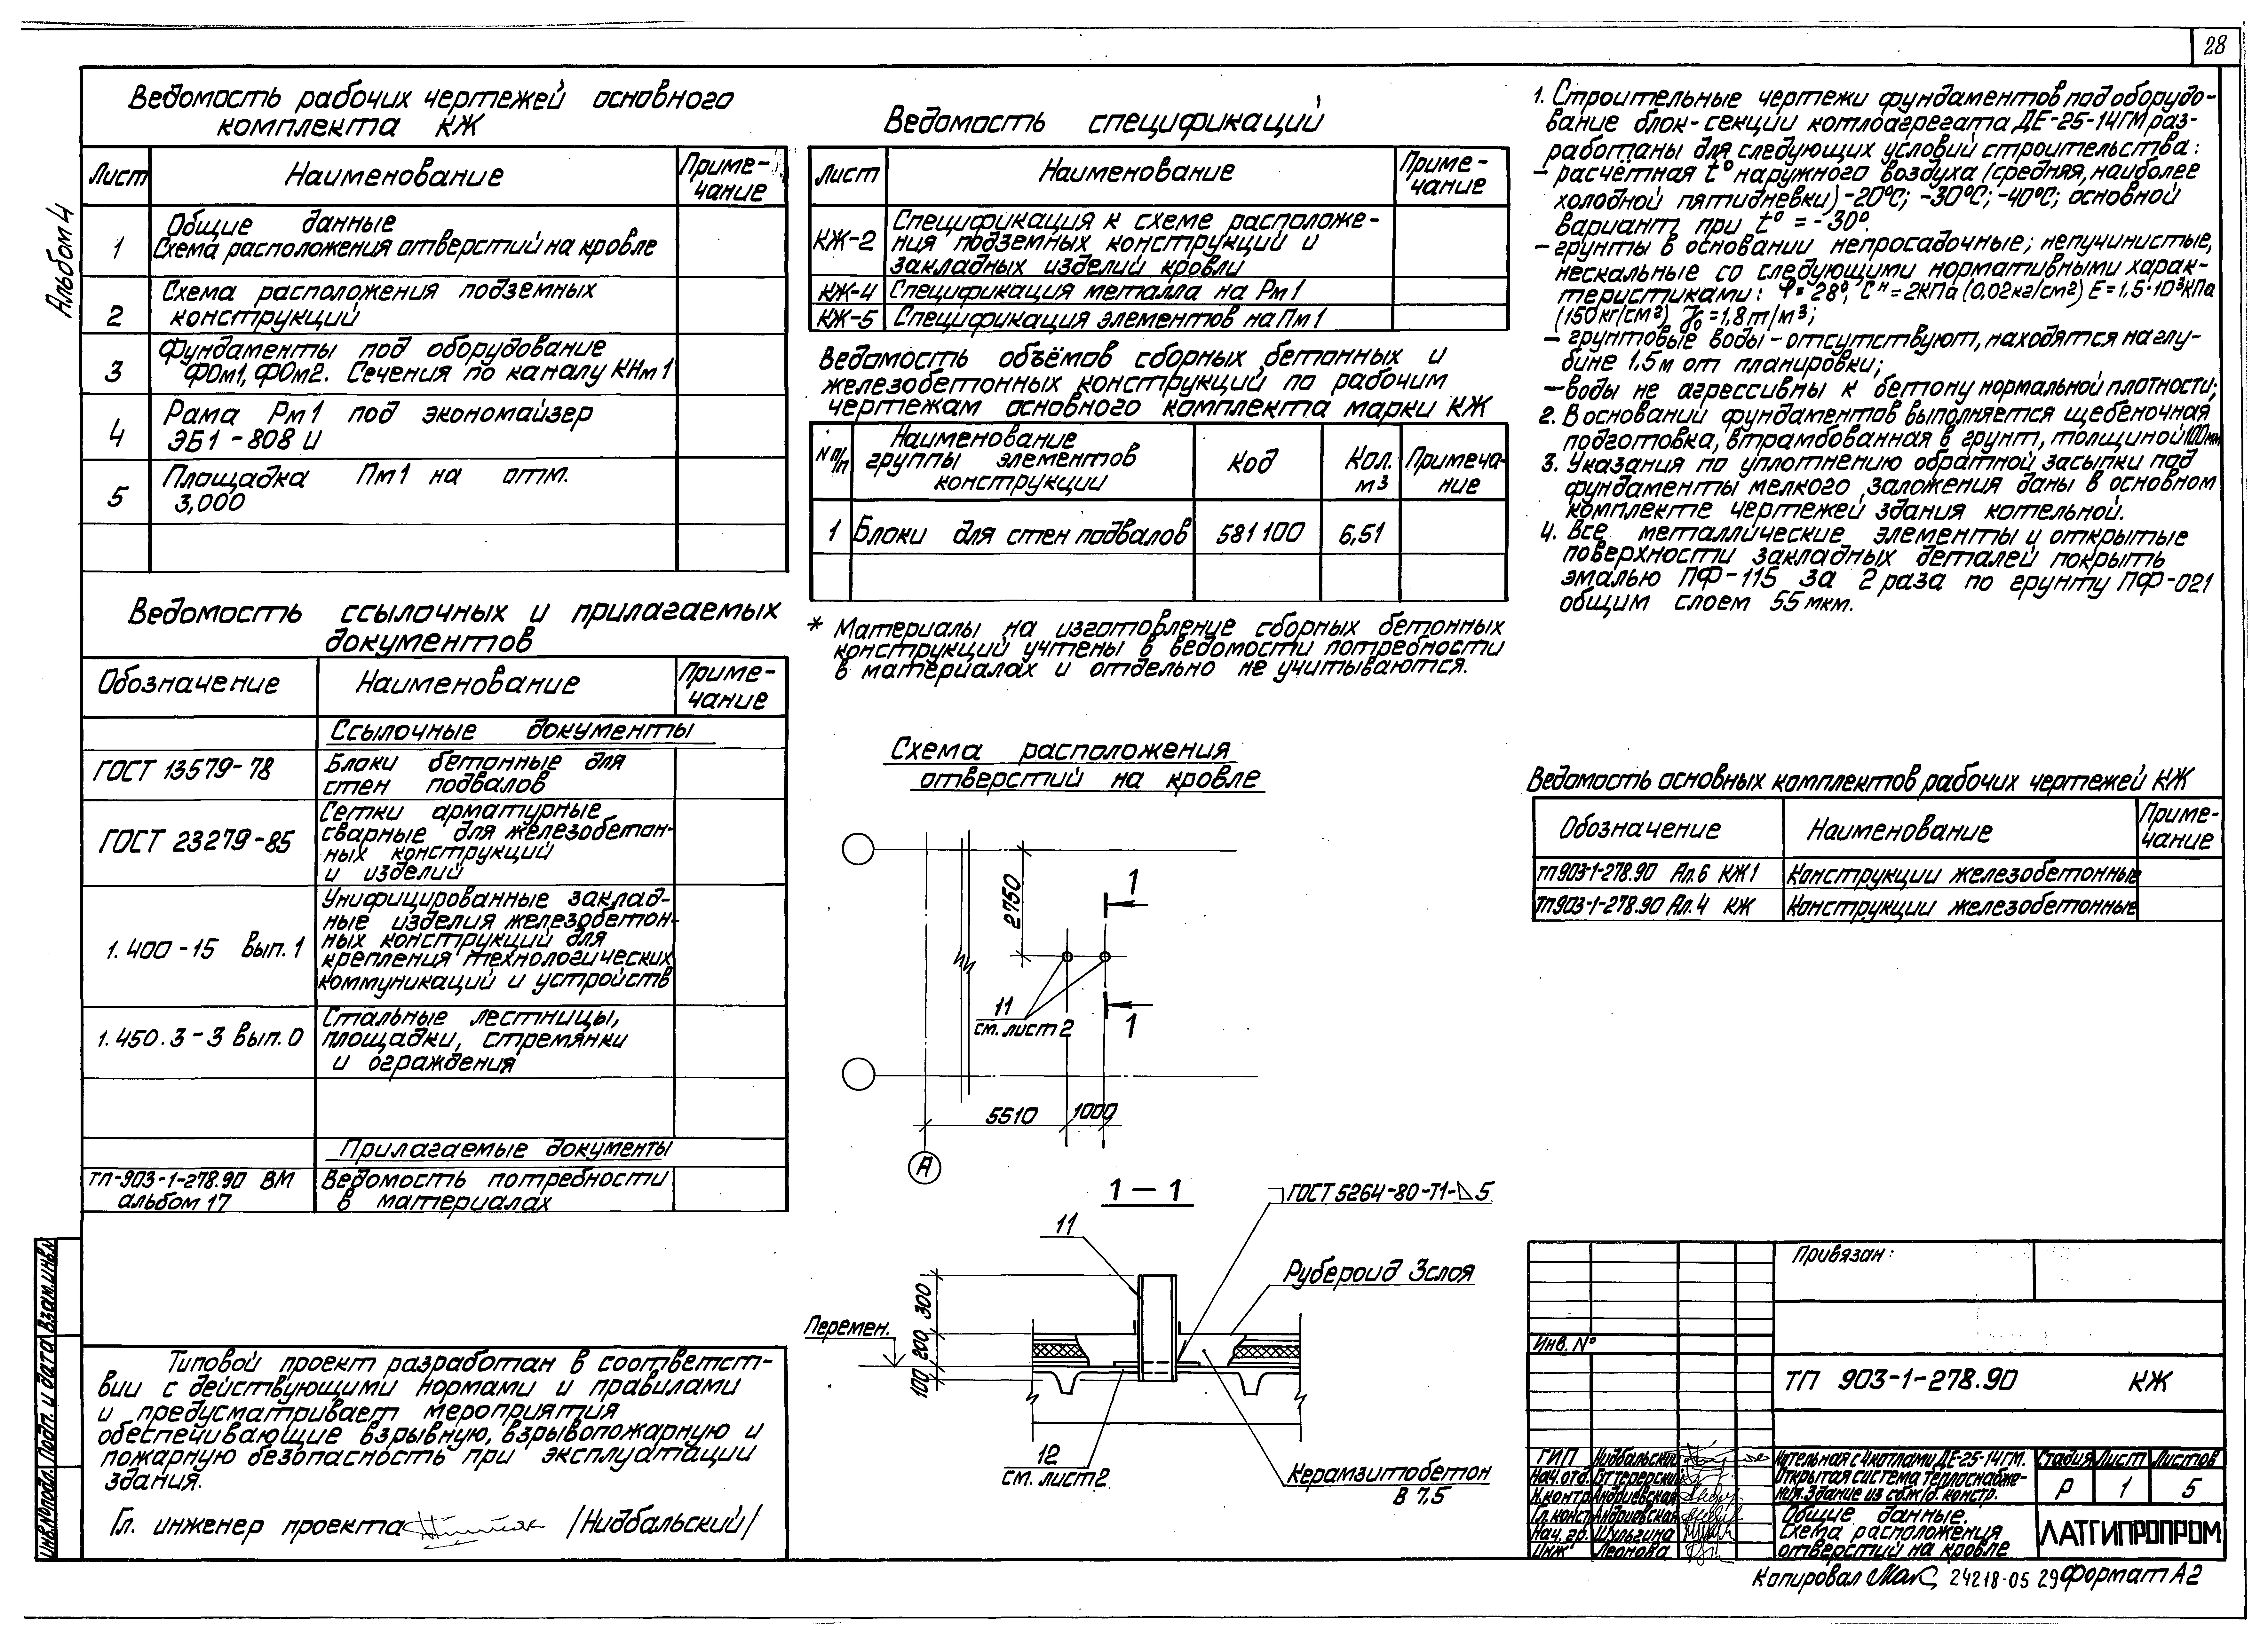 28
Альбом 4
Ведомость рабочих чертежей основного
комплекта КЖ
Лист Наименование Приме-
чание
1 Общие данные
Схема расположения отверстий на кровле
2 Схема расположения подземных
конструкций
3 Фундаменты под оборудование
ФОм1, ФОм2. Сечения по каналу КНм1
4 Рама Рм1 под экономайзер
ЭБ1-808И
5 Площадка Пм1 на отм.
3,000
Ведомость ссылочных и прилагаемых
документов
Обозначение Наименование Приме-
чание
Ссылочные документы
ГОСТ 13579-78 Блоки бетонные для
стен подвалов
ГОСТ 23279-85 Сетки арматурные
сварные для железобетон-
ных конструкций
и изделий
1.400-15 Вып.1 Унифицированные заклад-
ные изделия железобетон-
ных конструкций для
крепления технологических
коммуникаций и устройств
1.450.3-3 вып.0 Стальные лестницы,
площадки, стремянки
и ограждения
Прилагаемые документы
ТП-903-1-278.90 ВМ
альбом 17
Ведомость потребности
в материалах
Типовой проект разработан в соответст-
вии с действующими нормами и правилами
и предусматривает мероприятия
обеспечивающие взрывную, взрывопожарную и
пожарную безопасность при эксплуатации
здания.
Гл. инженер проекта /Нидбальский/
Инв.Nподл. Подп. и дата Взам.инв.N
Ведомость спецификаций
Лист Наименование Приме-
чание
КЖ-2 Спецификация к схеме расположе-
ния подземных конструкций и
закладных изделий кровли
КЖ-4 Спецификация металла на Рм1
КЖ-5 Спецификация элементов на Пм1
Ведомость объёмов сборных бетонных и
железобетонных конструкций по рабочим
чертежам основного комплекта марки КЖ
N п/п Наименование
группы элементов
конструкции
Код Кол.
м3
Примеча-
ние
1 Блоки для стен подвалов 581100 6,51
* Материалы на изготовление сборных бетонных
конструкций учтены в ведомости потребности
в материалах и отдельно не учитываются.
Схема расположения
отверстий на кровле
2750
1
11
см. лист 2
1
5510 1000
А
1-1
ГОСТ 5264-80-Т1-⊿5
11
Рубероид 3слоя
300
Перемен.
200
100
12
см. лист2
Керамзитобетон
В 7,5
1. Строительные чертежи фундаментов под оборудо-
вание блок-секции котлоагрегата ДЕ-25-14ГМ раз-
работаны для следующих условий строительства:
- расчётная t° наружного воздуха (средняя, наиболее
холодной пятидневки) -20°С; -30°С; -40°С; основной
вариант при t° = -30°.
- грунты в основании непросадочные; непучинистые,
нескальные со следующими нормативными харак-
теристиками: φ = 28°; Сн = 2КПа (0,02кг/см2) Е = 1,5·10³КПа
(150кг/см2) γо = 1,8т/м3;
- грунтовые воды - отсутствуют, находятся на глу-
бине 1.5м от планировки;
- воды не агрессивны к бетону нормальной плотности;
2. В основании фундаментов выполняется щебеночная
подготовка, втрамбованная в грунт, толщиной 100мм
3. Указания по уплотнению обратной засыпки под
фундаменты мелкого заложения даны в основном
комплекте чертежей здания котельной.
4. Все металлические элементы и открытые
поверхности закладных деталей покрыть
эмалью ПФ-115 за 2 раза по грунту ПФ-021
общим слоем 55 мкм.
Ведомость основных комплектов рабочих чертежей КЖ
Обозначение Наименование Приме-
чание
ТП903-1-278.90 Ал.6 КЖ1 Конструкции железобетонные
ТП903-1-278.90 Ал.4 КЖ Конструкции железобетонные
Привязан:
Инв. N°
ТП 903-1-278.90 КЖ
ГИП Нидбальский
Нач.отд.
Н.контр Андриевская
Гл.конст Андриевская
Нач. гр. Шульгина
Инж Леонова
Котельная с 4 котлами ДЕ-25-14ГМ.
Открытая система теплоснабже-
ния. Здание из сб.ж/б. констр.
Стадия Лист Листов
Р 1 5
Общие данные.
Схема расположения
отверстий на кровле
ЛАТГИПРОПРОМ
Копировал 24218-05 29 Формат А2